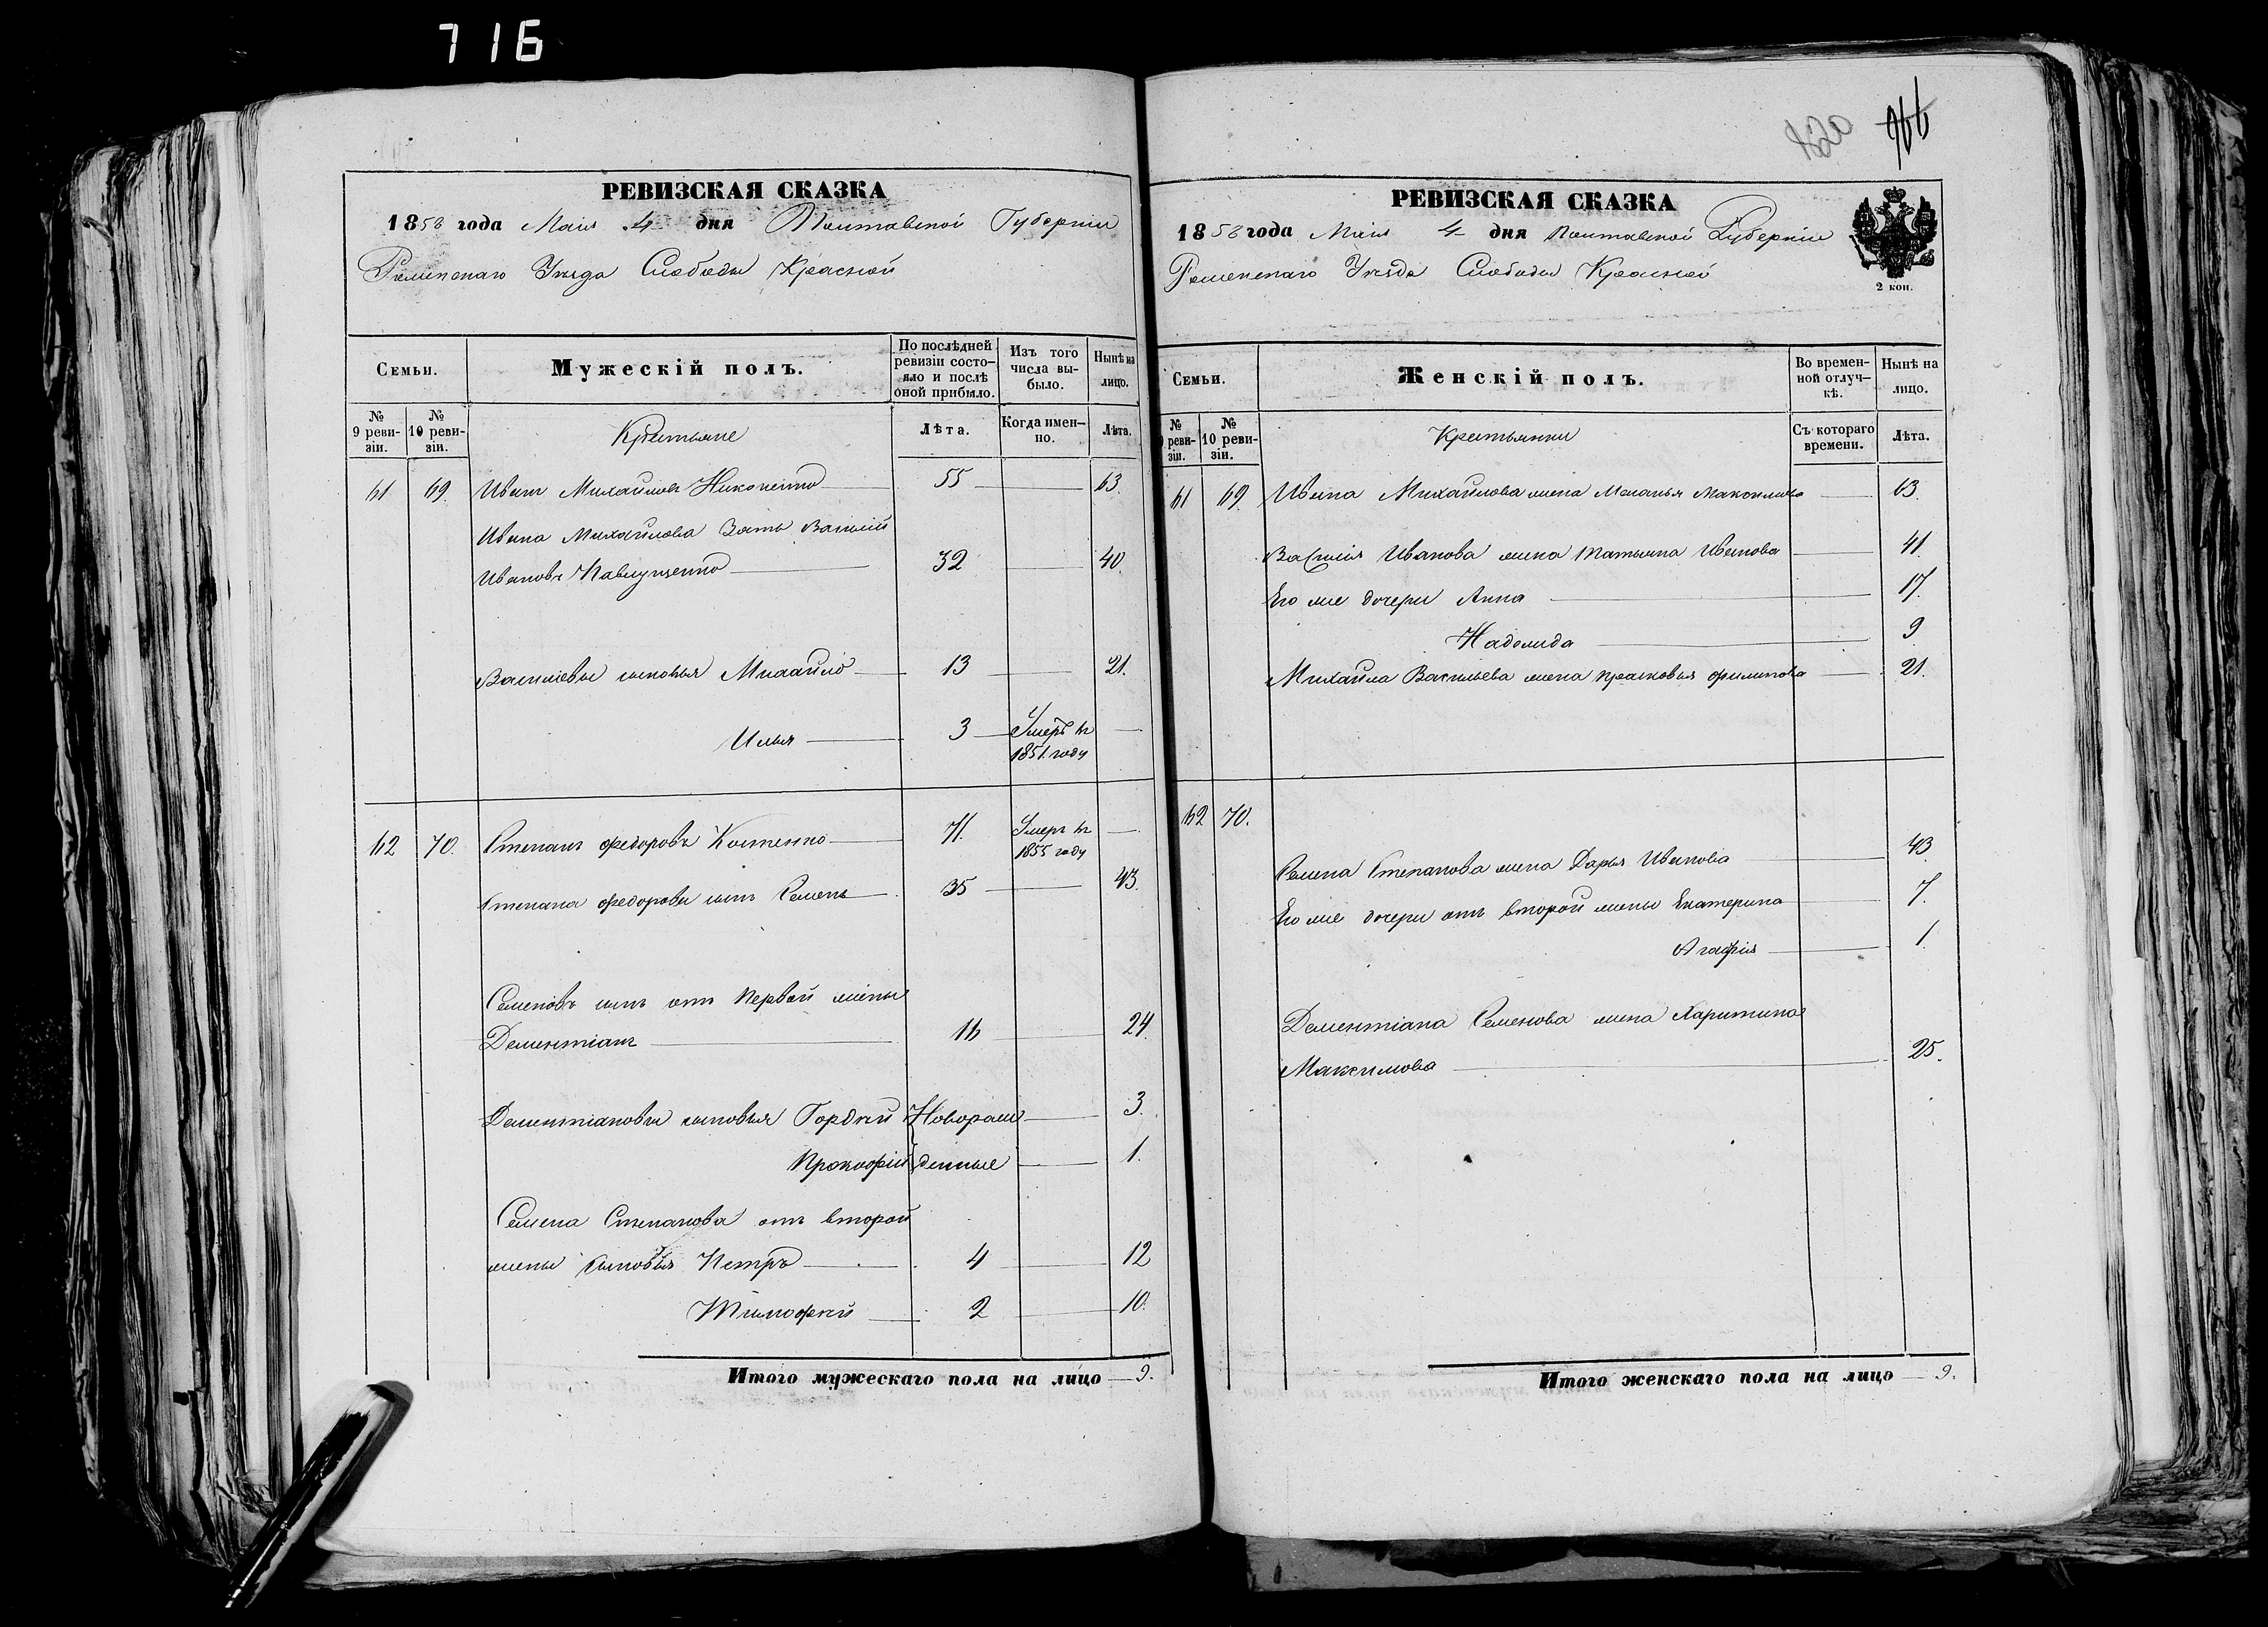 716
РЕВИЗСКАЯ СКАЗКА
1858 года Маія 4 дня Полтавской Губерніи
Роменскаго Уѣзда Слободы Красной
Семьи.
Мужескій полъ.
По послѣдней ревизіи состояло и послѣ оной прибыло.
Изъ того числа выбыло.
Нынѣ на лицо.
№ 9 ревизіи.
№ 10 ревизіи.
Крестьяне
Лѣта.
Когда именно.
Лѣта.
61 69. Иванъ Михайловъ 55 63.
Ивана Михайлова Зять Василій
Ивановъ Павлущенко 32 40.
Василіевы сыновья Михайло 13 21.
Илья 3 Умеръ въ
1851. году
62 70. Степанъ Федоровъ Костенко 71. Умеръ въ
1855 году
Степана Федорова сынъ Семенъ 35 43.
Семеновъ сынъ отъ первой жены
Дементіанъ 16 24.
Дементіановы сыновья Гордѣй Новорож- 3.
Прокофій денные 1.
Семена Степанова отъ второй
жены сыновья Петръ 4 12
Тимофѣй 2 10.
Итого мужескаго пола на лицо 9.
РЕВИЗСКАЯ СКАЗКА
1858 года Маія 4 дня Полтавской Губерніи
Роменскаго Уѣзда Слободы Красной
2 коп.
Семьи.
Женскій полъ.
Во временной отлучкѣ.
Нынѣ на лицо.
№ 9 ревизіи.
№ 10 ревизіи.
Крестьянки
Съ котораго времени.
Лѣта.
61 69. Ивана Михайлова жена Меланья Максимова 63.
Василія Иванова жена Татьяна Иванова 41.
Его же дочери Анна 17.
9
Михайла Васильева жена Прасковья Филипова 21.
62 70.
Семена Степанова жена Дарья Иванова 43.
Его же дочери отъ второй жены Екатерина 7.
Агафія 1.
Дементіана Семенова жена Харитина
Максимова 25.
Итого женскаго пола на лицо 9.